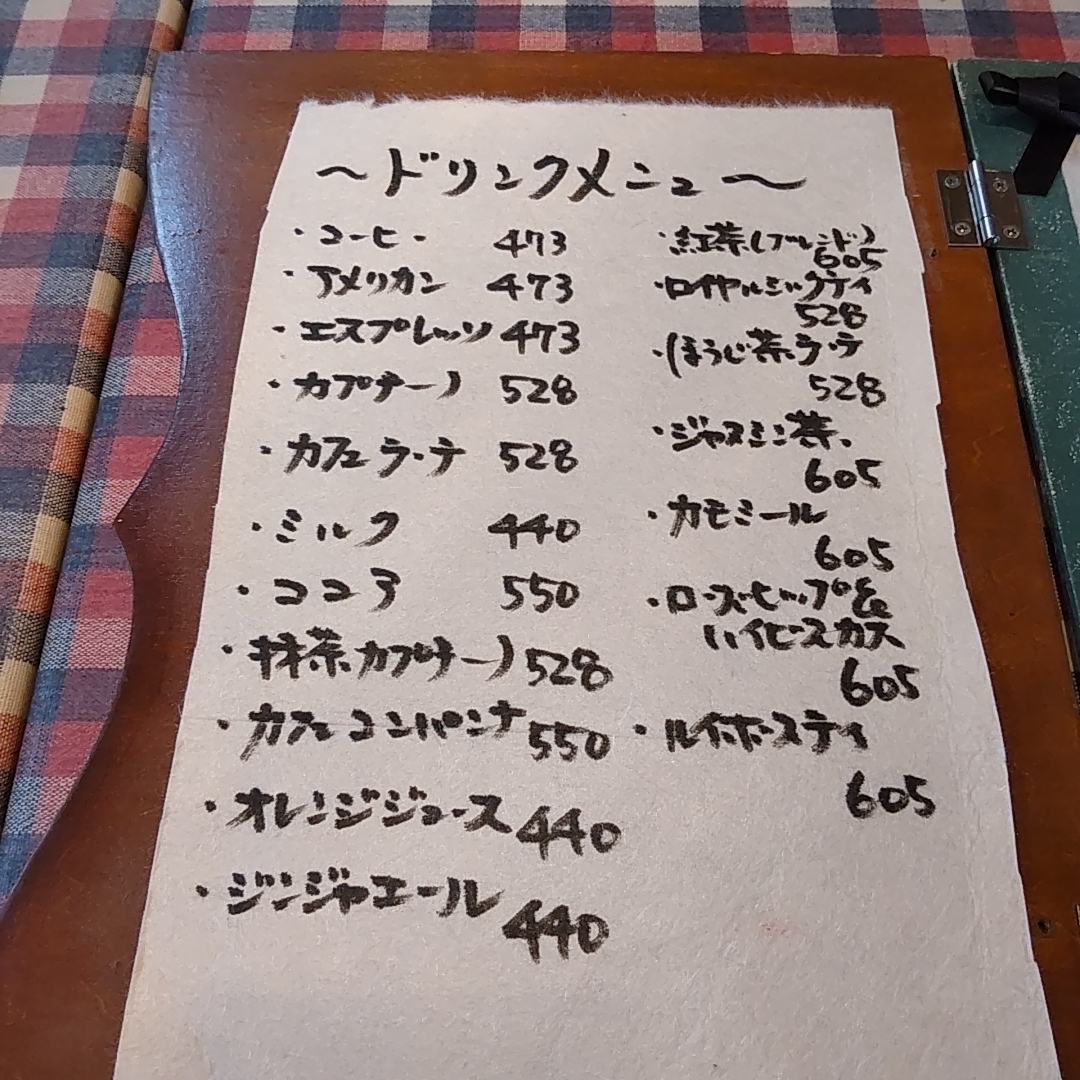 ～ドリンクメニュー～
・コーヒー 473
・アメリカン 473
・エスプレッソ 473
・カプチーノ 528
・カフェラッテ 528
・ミルク 440
・ココア 550
・抹茶カプチーノ 528
・カフェコンパンナ 550
・オレンジジュース 440
・ジンジャエール 440
・紅茶(ブレンド)
605
・ロイヤルミルクティ
528
・ほうじ茶ラッテ
528
・ジャスミン茶
605
・カモミール
605
・ローズヒップ&
ハイビスカス
605
・ルイボスティ
605